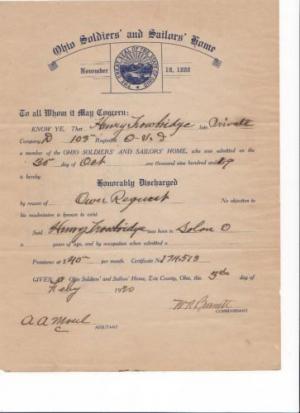 Ohio Soldiers' and Sailors' Home
November 19, 1888
To all Whom it May Concern:
KNOW YE, That Henry Trowbridge late Private
Company D 103 Regiment O. V. I
a member of the OHIO SOLDIERS' AND SAILORS' HOME, who was admitted on the
30 day of Oct one thousand nine hundred and 19
is hereby
Honorably Discharged
by reason of Own Request No objection to
his readmission is known to exist
Said Henry Trowbridge was born in Solon O
years of age, and by occupation when admitted a
Pension at $40 per month. Certificate No
GIVEN at Ohio Soldiers' and Sailors' Home, Erie County, Ohio, this 5th day of
Feby 1920
COMMANDANT
A A Moul
ADJUTANT